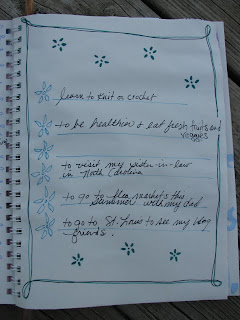 learn to knit or crochet
to be healthier & eat fresh fruits and
veggies
to visit my sister-in-law
in North Carolina
to go to flea markets this
summer with my dad
to go to St. Louis to see my blog
friends.